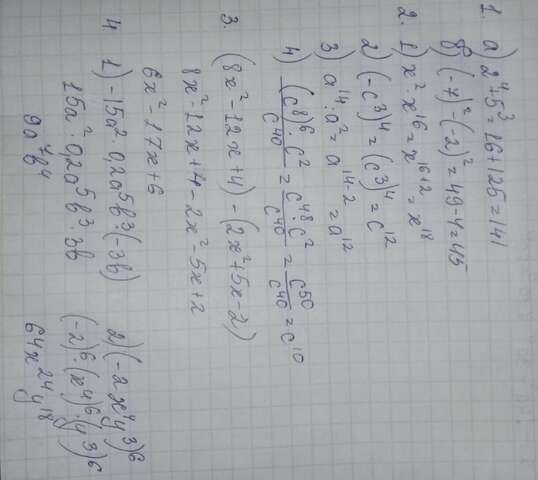 1. а) 2⁴+5³=16+125=141
б) (-7)²-(-2)²=49-4=45
2. 1) x²·x¹⁶=x¹⁶⁺²=x¹⁸
2) (-c³)⁴=(c³)⁴=c¹²
3) a¹⁴:a²=a¹⁴⁻²=a¹²
4) (c⁸)⁶·c²/c⁴⁰=c⁴⁸·c²/c⁴⁰=c⁵⁰/c⁴⁰=c¹⁰
3. (8x²-12x+4)-(2x²+5x-2)
8x²-12x+4-2x²-5x+2
6x²-17x+6
4 1) -15a²·0,2a⁵b³·(-3b)
15a²·0,2a⁵b³·3b
9a⁷b⁴
2) (-2x⁴y³)⁶
(-2)⁶·(x⁴)⁶·(y³)⁶
64x²⁴y¹⁸